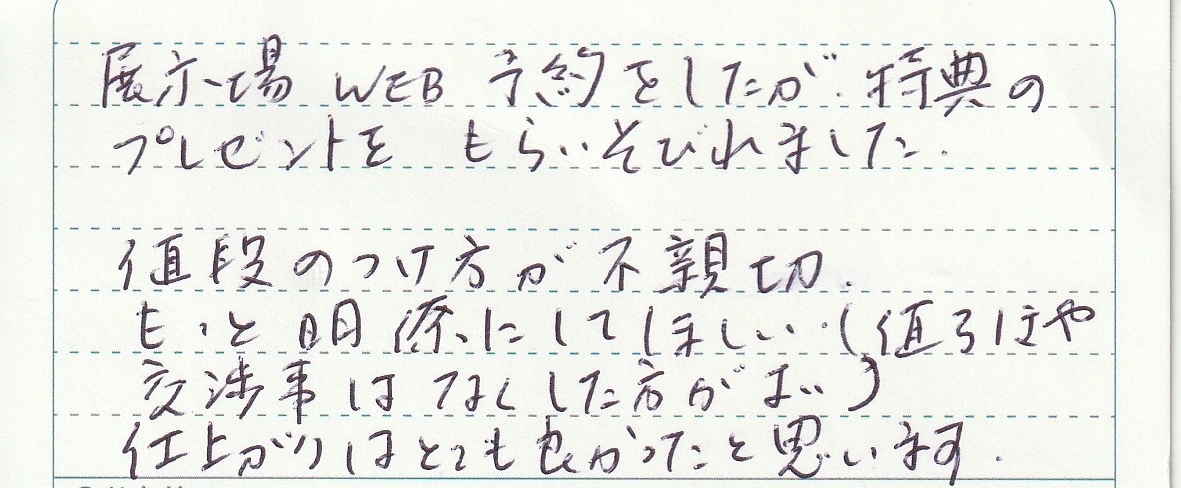 展示場 WEB 予約をしたが.特典の
プレゼントを もらいそびれました.
値段のつけ方が不親切.
もっと明瞭にしてほしい.(値引や
交渉事はなくした方が)
仕上がりはとても良かったと思います.